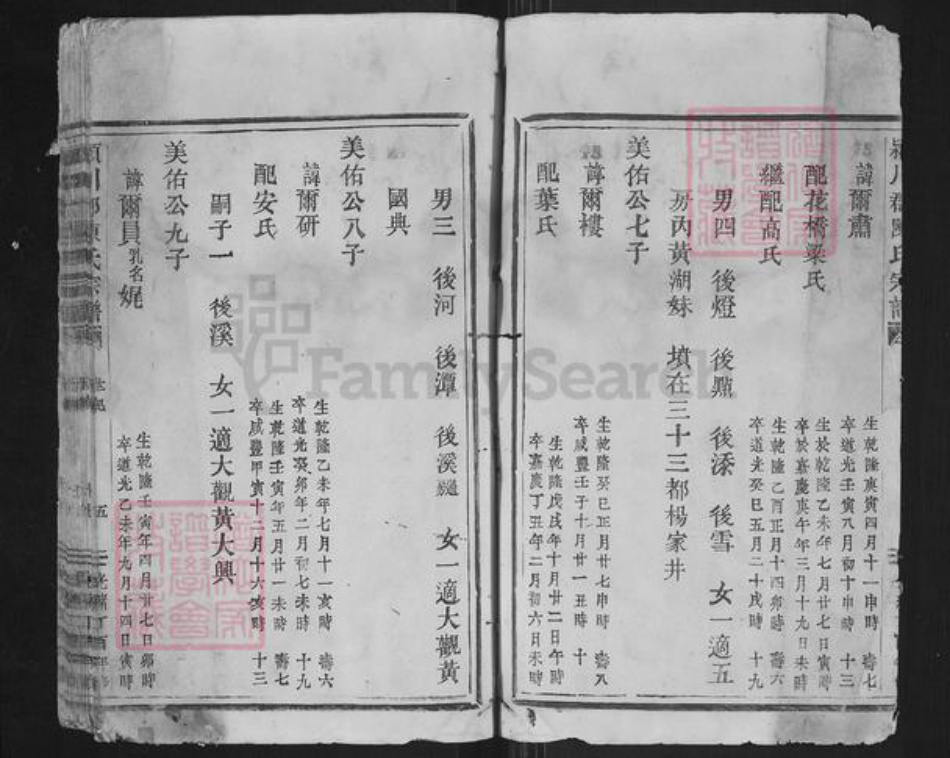 諱爾肅
生乾隆庚寅四月十一申時 壽七
卒道光壬寅八月初十申時 十三
配花橋梁氏
生於乾隆乙未年七月廿七日寅時
卒於嘉慶庚午年三月十九日未時
繼配高氏
生乾隆乙酉正月十四卯時 壽六
卒道光癸巳五月二十戌時 十九
男四 後燈 後鼎 後渁 後雪 女一適五
房丙黃湖妹 墳在三十三都楊家井
美佑公七子
諱爾樓
生乾隆癸巳正月廿七申時 壽八
卒咸豐壬子十月廿一丑時 十
配葉氏
生乾隆戊戌年十月廿二日午時
卒嘉慶丁丑年二月初六日未時
男三 後河 後潭 後溪繼 女一適大觀黃
國典
美佑公八子
諱爾研
生乾隆乙未年七月十一亥時 壽六
卒道光癸卯年二月初七未時 十九
配安氏
生乾隆壬寅年五月廿一未時 壽七
卒咸豐甲寅十二月十六亥時 十三
嗣子一 後溪 女一適大觀黃大興
美佑公九子
諱爾員乳名娓
生乾隆壬寅年四月廿七日卯時
卒道光乙未年九月十四日寅時
五
FamilySearch